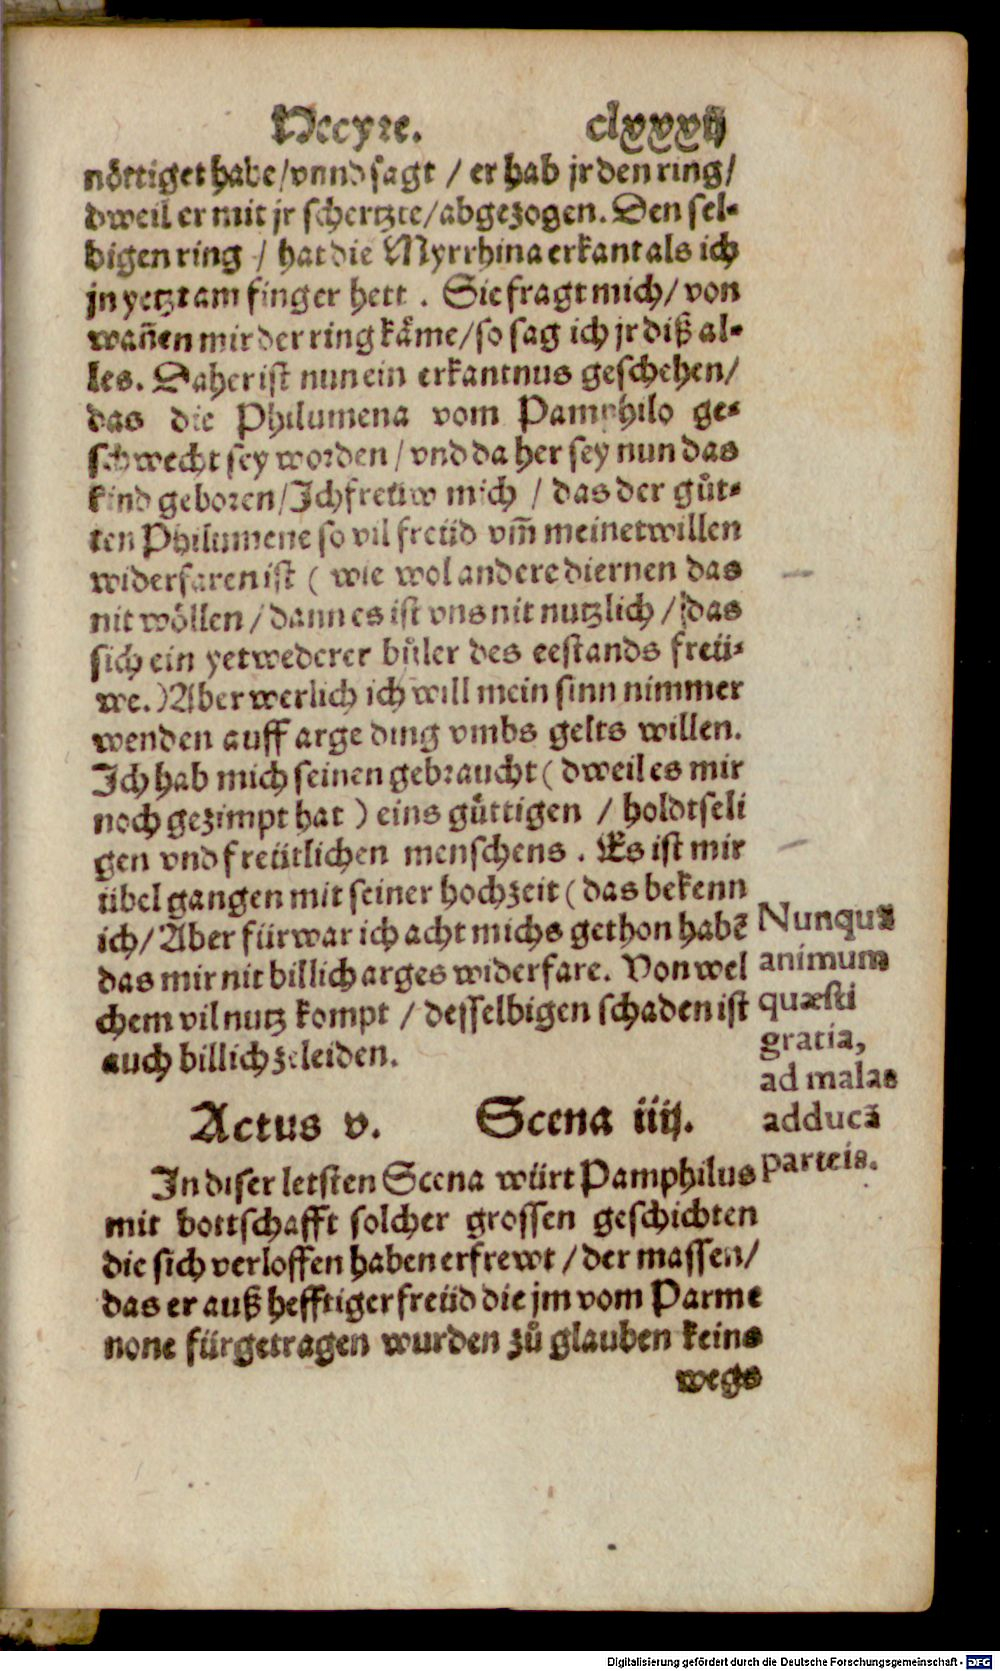 Hecyre. clxxxvij
nöttiget habe/vnnd sagt / er hab jr den ring/
dweil er mit jr schertzte/abgezogen. Den sel-
bigen ring / hat die Myrrhina erkant als ich
jn yetzt am finger hett . Sie fragt mich/ von
wañen mir der ring käme/so sag ich jr diß al-
les. Daher ist nun ein erkantnus geschehen/
das die Philumena vom Pamphilo ge-
schwecht sey worden / vnd da her sey nun das
kind geboren/Ich freüw mich / das der gůt-
ten Philumene so vil freüd vm̃ meinet willen
widerfaren ist ( wie wol andere diernen das
nit wöllen / dann es ist vns nit nutzlich / das
sich ein yetwederer bůler des eestands freü-
we.) Aber werlich ich will mein sinn nimmer
wenden auff arge ding vmbs gelts willen.
Ich hab mich seinen gebraucht ( dweil es mir
noch gezimpt hat ) eins güttigen / holdtseli
gen vnd freütlichen menschens . Es ist mir
übel gangen mit seiner hochzeit ( das bekenn
ich/ Aber fürwar ich acht michs gethon habẽ
das mir nit billich arges widerfare. Von wel
chem vil nutz kompt / desselbigen schaden ist
auch billich zeleiden.
Nunquã
animum
quæsti
gratia,
ad malas
adducã
parteis.
Actus v. Scena iiij.
In diser letsten Scena würt Pamphilus
mit bottschafft solcher grossen geschichten
die sich verloffen haben erfrewt / der massen/
das er auß hefftiger freüd die jm vom Parme
none fürgetragen wurden zů glauben keins
wegs
Digitalisierung gefördert durch die Deutsche Forschungsgemeinschaft - DFG